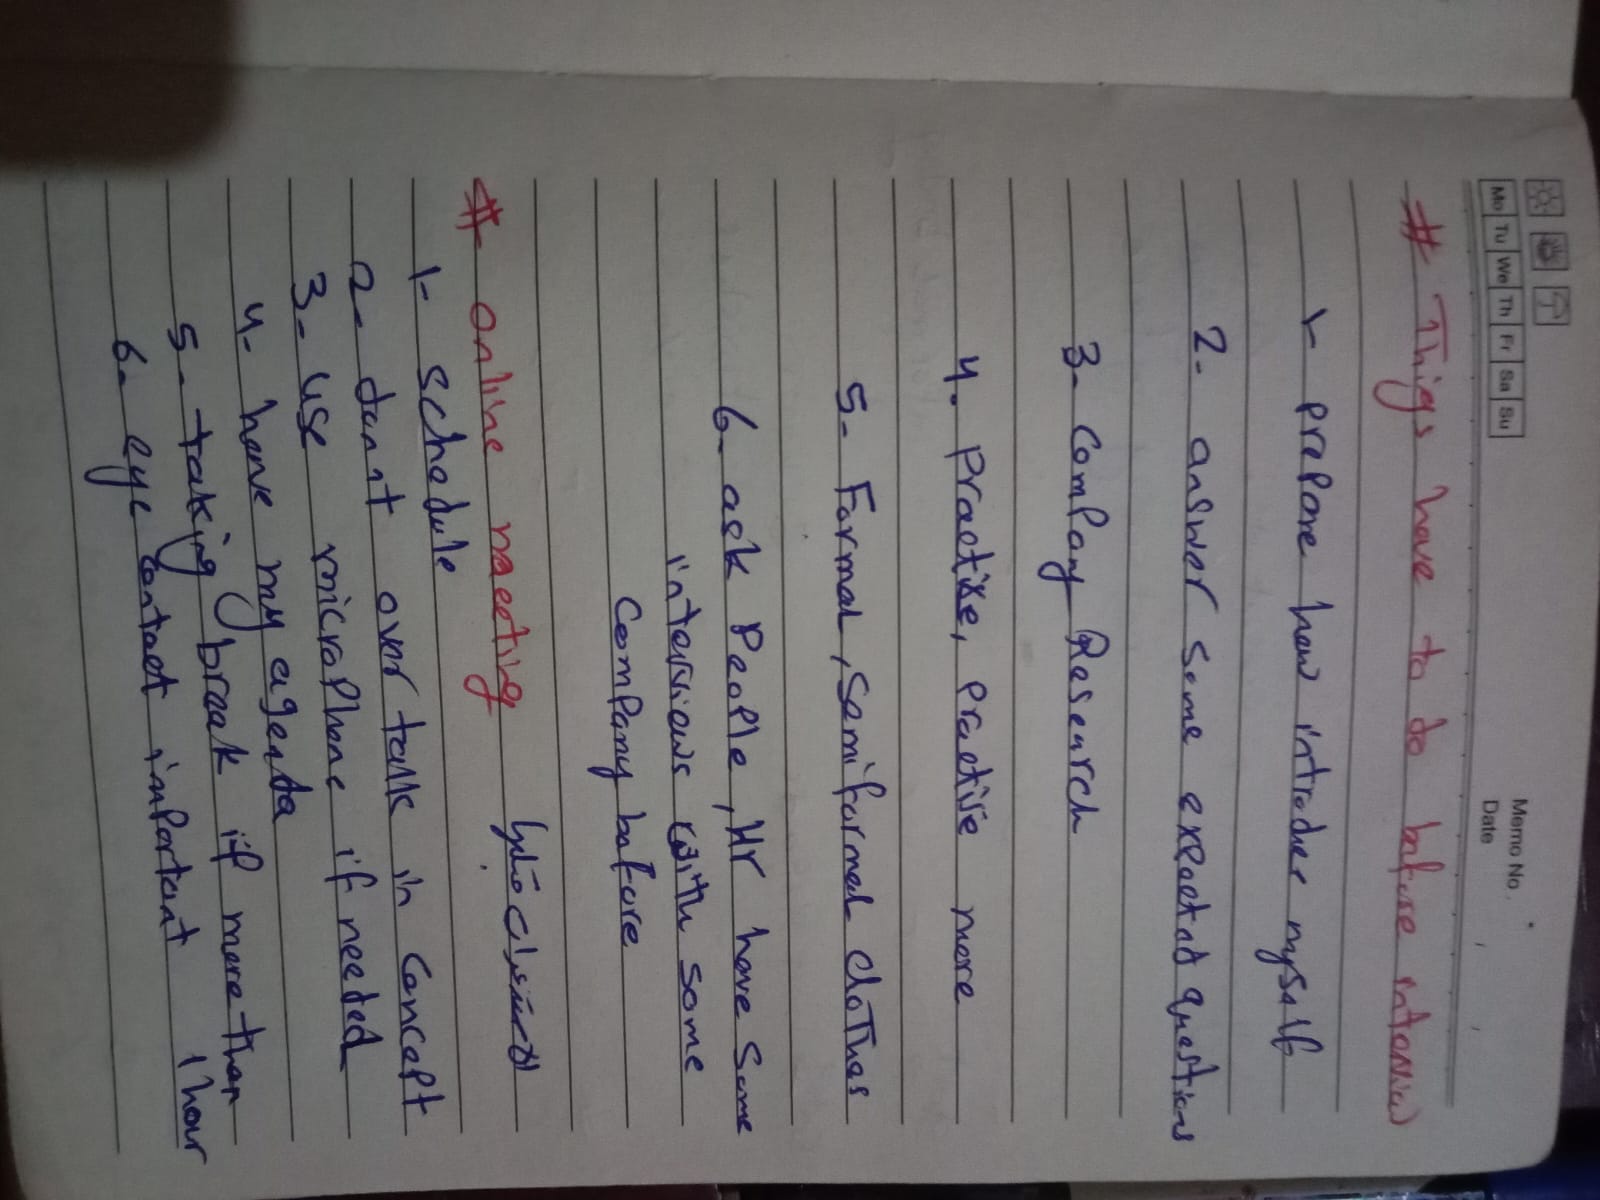 Mo Tu We Th Fr Sa Su
Memo No.
Date / /
# Thigs have to do before interview
1- prepare how introduce myself
2- answer some expected questions
3- Company Research
4. practise, practise more
5- Formal, semi formal cloThes
6- ask People, Hr have some
interviews with some
Company before
# online meeting
1- schedule
2- donnt over talk in concept
3- use microphone if needed
4- have my agenda
5- taking break if more than
1 hour
6- eye contact important